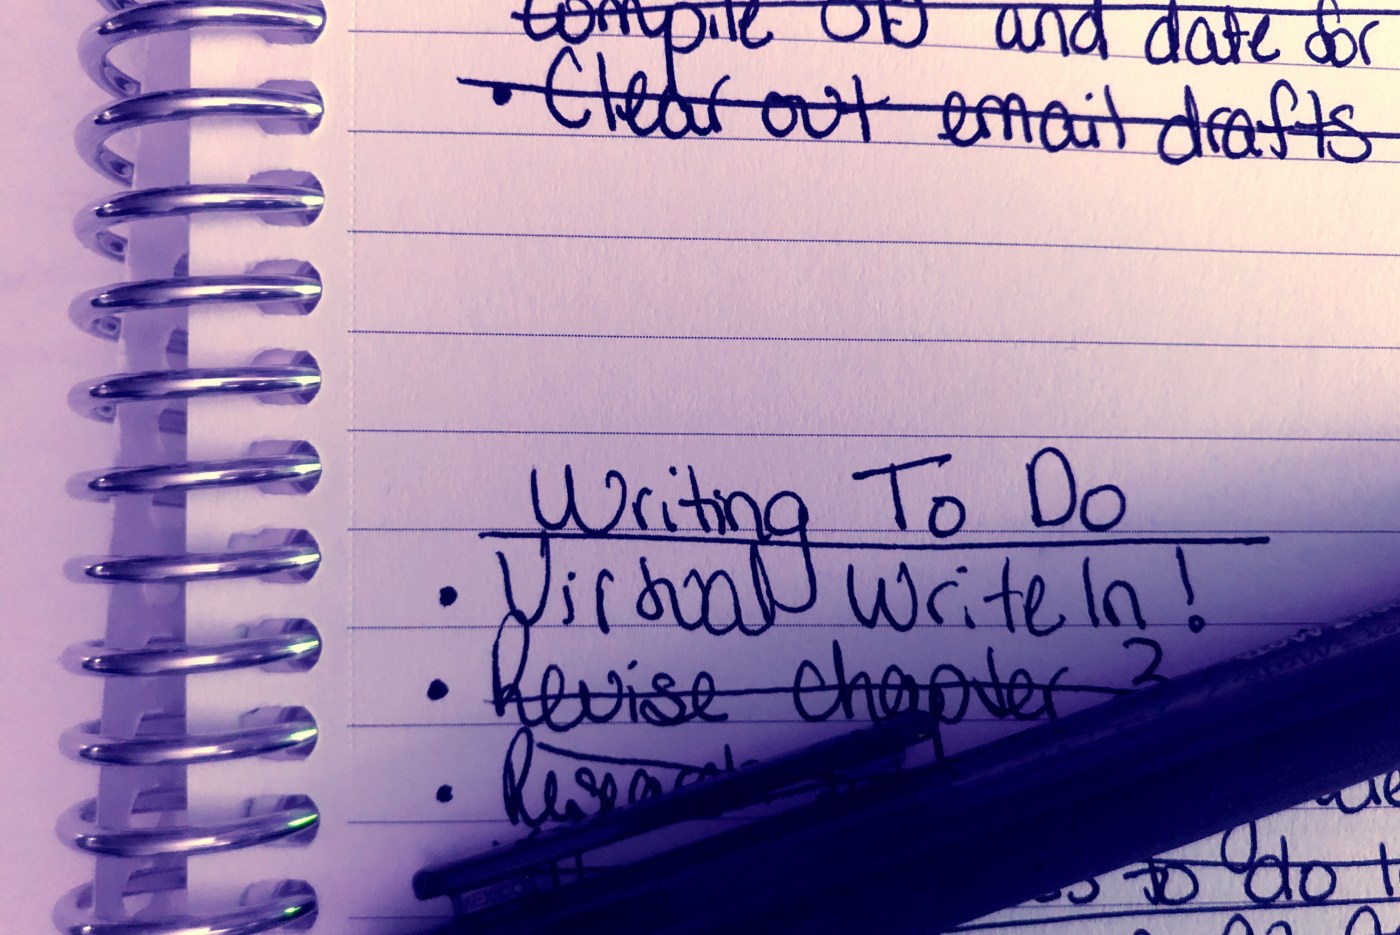 compile OD and date for
• Clear out email drafts
Writing To Do
• Virtual Write In!
• Revise chapter 2
• Research
to do